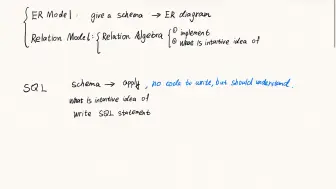 ER Model. give a schema → ER diagram
Relation Model: Relation Algebra ① implement
② what is intuitive idea of
SQL schema → apply, no code to write, but should understand.
what is intuitive idea of
write SQL statement